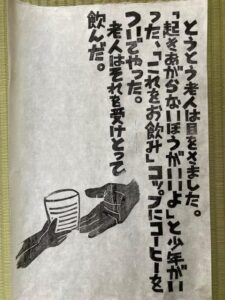 とうとう老人は目をさました。
「起きあがらないほうがいいよ」と少年がい
った、「これをお飲み」コップにコーヒーを
ついでやった。
老人はそれを受けとって
飲んだ。